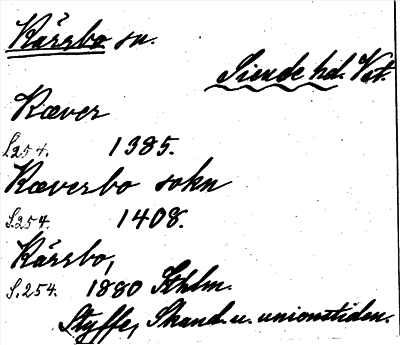 Kärrbo sn.
Siende hd. Vstm.
Kærer
S.254. 1385.
Kæverbo sokn
S.254. 1408.
Kärrbo,
S.254. 1880 Sthlm.
Styffe, Skand. u. unionstiden.